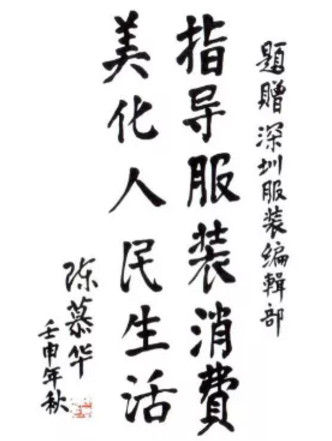 題贈深圳服装编輯部
指导服装消費
美化人民生活
陈慕华
壬申年秋